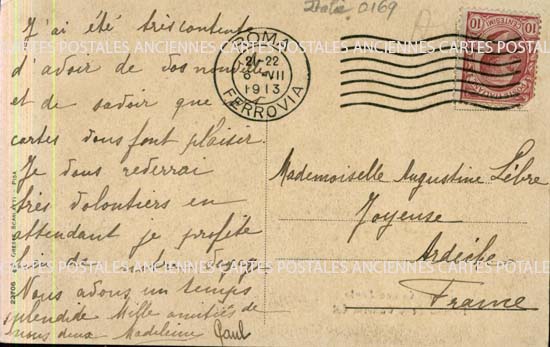 Italie 0169
J'ai été très contente
d'avoir de vos nouvelles
et de savoir que
cartes vous font plaisir.
Je vous reverrai
très volontiers en
attendant je profite
bien de
Nous avons un temps
splendide Mille amitiés de
nous deux Madeleine Paul
ROMA
21-22
6 VII
1913
FERROVIA
10 CENTESIMI 10
Mademoiselle Augustine Lèbre
Joyeuse
Ardèche
France
CARTES POSTALES ANCIENNES CARTES POSTALES ANCIENNES CARTES POSTALES
CARTES POSTALES ANCIENNES CARTES POSTALES ANCIENNES CARTES POSTALES
22706
PISA